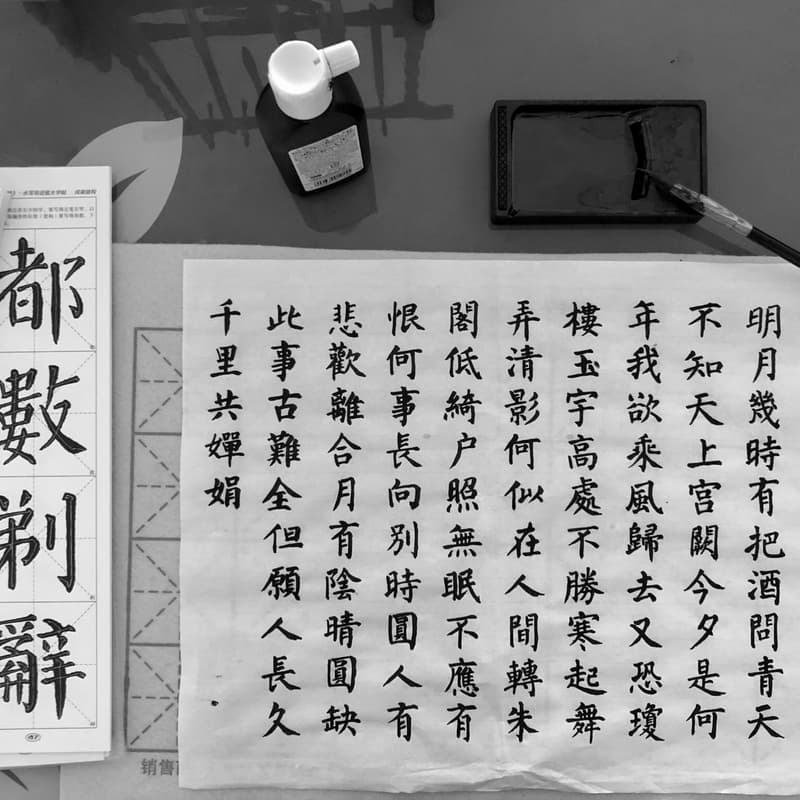 明月幾時有把酒問青天
不知天上宮闕今夕是何
年我欲乘風歸去又恐瓊
樓玉宇高處不勝寒起舞
弄清影何似在人間轉朱
閣低綺户照無眠不應有
恨何事長向别時圓人有
悲歡離合月有陰晴圓缺
此事古難全但願人長久
千里共嬋娟
都
數
剃
辭
销售